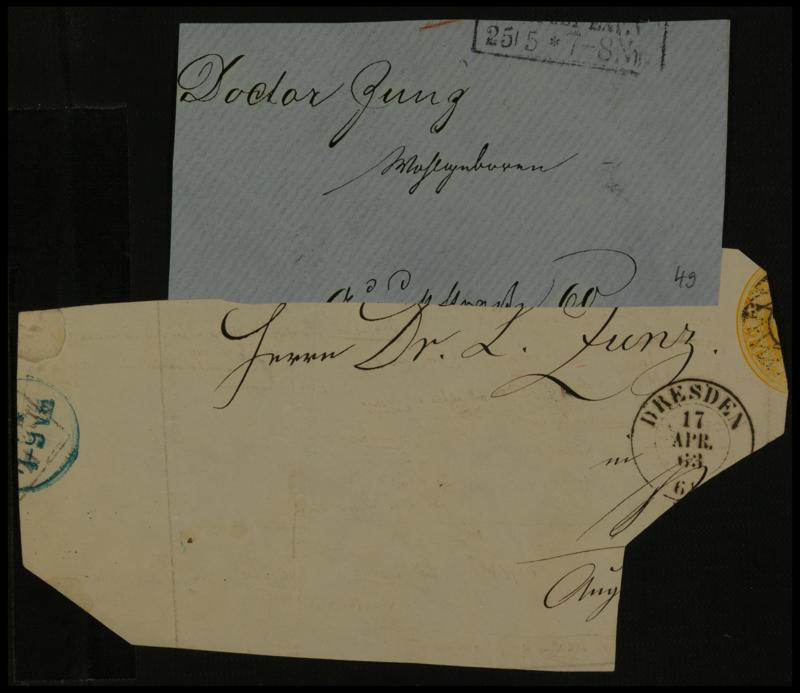 25 5 * 7-8 N
Doctor Zunz
Wohlgeboren
49
Herrn Dr. L. Zunz.
DRESDEN
17
APR.
63
in
Aug